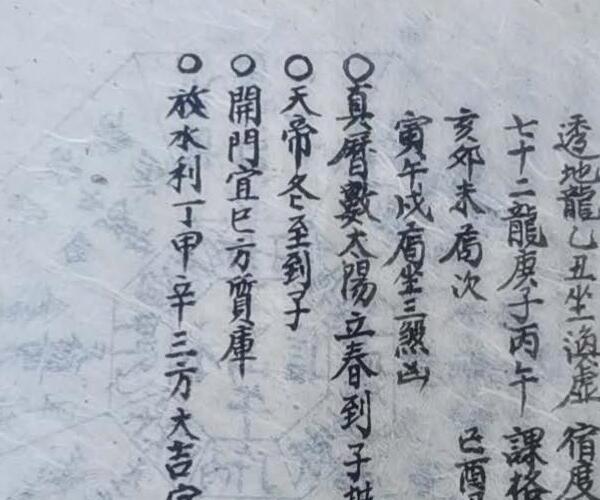 透地龍乙丑坐海虛 宿度
七十二龍庚子丙午 課格
亥卯未爲次 巳酉
寅午戌爲坐三煞凶
○真曆數太陽立春到子
○天帝冬至到子
○開門宜巳方質庫
○放水利丁甲辛三方大吉